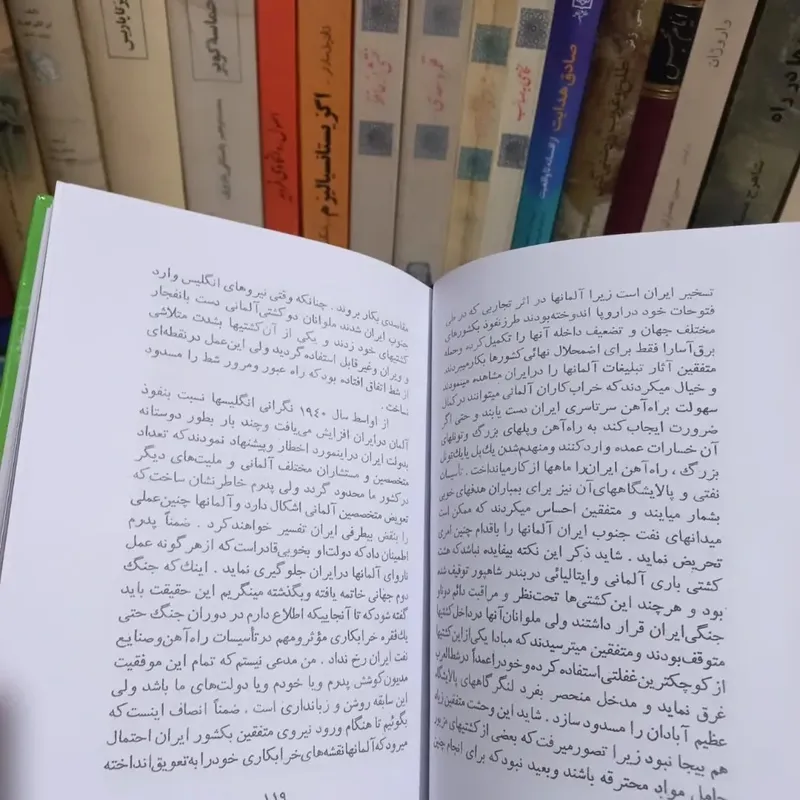 حماسه کویر
اگزیستانسیالیزم
صادق هدایت
از افسانه تا واقعیت
داروژان
تسخیر ایران است زیرا آلمانها در اثر تجاربی که در طی
فتوحات خود در اروپا اندوخته بودند طرز نفوذ بکشورهای
مختلف جهان و تضعیف داخله آنها را تکمیل کرده وحمله
برق‌آسارا فقط برای اضمحلال نهائی کشورها بکار میبردند
متفقین آثار تبلیغات آلمانها را در ایران مشاهده مینمودند
و خیال میکردند که خراب‌کاران آلمانی میتوانند در کمال
سهولت براه‌آهن سرتاسری ایران دست یابند و حتی اگر
ضرورت ایجاب کند به راه‌آهن وپلهای بزرگ و تونلهای
آن خسارات عمده وارد کنند و منهدم‌شدن یك‌پل یا یك‌تونل
بزرگ ، راه‌آهن ایران را ماهها از کار میانداخت . تأسیسات
نفتی و پالایشگاههای آن نیز برای بمباران هدفهای خوبی
بشمار میایند و متفقین احساس میکردند که ممکن است
میدانهای نفت جنوب ایران آلمانها را باقدام چنین امری
تحریض نماید . شاید ذکر این نکته بیفایده نباشد که هشت
کشتی باری آلمانی وایتالیائی در بندر شاهپور توقیف شده
بود و هرچند این کشتی‌ها تحت‌نظر و مراقبت دائم دو ناو
جنگی ایران قرار داشتند ولی ملوانان آنها در داخل کشتیها
متوقف بودند و متفقین میترسیدند که مبادا یکی از این کشتیها
از کوچکترین غفلتی استفاده کرده وخود را عمداً در شط‌العرب
غرق نماید و مدخل منحصر بفرد لنگرگاههای پالایشگاه
عظیم آبادان را مسدود سازد . شاید این وحشت متفقین زیاد
هم بیجا نبود زیرا تصور میرفت که بعضی از کشتیهای مزبور
حامل مواد محترقه باشند و بعید نبود که برای انجام چنین
مقاصدی بکار بروند . چنانکه وقتی نیروهای انگلیس وارد
جنوب ایران شدند ملوانان دو کشتی آلمانی دست بانفجار
کشتیهای خود زدند و یکی از آن کشتیها بشدت متلاشی
و ویران وغیر قابل استفاده گردید ولی این عمل در نقطه‌ای
از شط اتفاق افتاده بود که راه عبور ومرور شط را مسدود
نساخت .
از اواسط سال ۱۹۴۰ نگرانی انگلیسها نسبت بنفوذ
آلمان در ایران افزایش می‌یافت وچند بار بطور دوستانه
بدولت ایران در اینمورد اخطار وپیشنهاد نمودند که تعداد
متخصصین و مستشاران مختلف آلمانی و ملیت‌های دیگر
در کشور ما محدود گردد ولی پدرم خاطرنشان ساخت که
تعویض متخصصین آلمانی اشکال دارد و آلمانها چنین عملی
را بنقض بیطرفی ایران تفسیر خواهند کرد . ضمناً پدرم
اطمینان داد که دولت او بخوبی قادر است که از هر گونه عمل
ناروای آلمانها در ایران جلوگیری نماید . اینك که جنگ
دوم جهانی خاتمه یافته وبگذشته مینگریم این حقیقت باید
گفته شود که تا آنجاییکه اطلاع دارم در دوران جنگ حتی
یك فقره خرابکاری مؤثر ومهم در تأسیسات راه‌آهن وصنایع
نفت ایران رخ نداد . من مدعی نیستم که تمام این موفقیت
مدیون کوشش پدرم ویا خودم ویا دولت‌های ما باشد ولی
این سابقه روشن و زبانداری است . ضمناً انصاف اینست که
بگوئیم تا هنگام ورود نیروی متفقین بکشور ایران احتمال
میرود که آلمانها نقشه‌های خرابکاری خود را به تعویق انداخته
۱۱۹